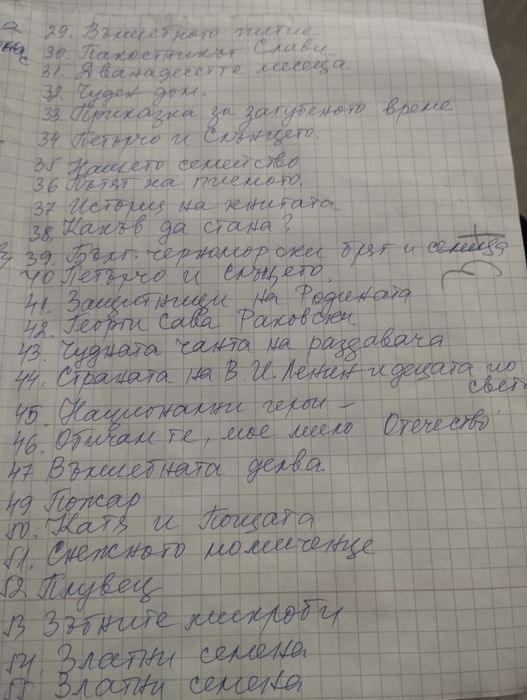 29. Вълшебното питие
30. Пакостникът Слави
31. Дванадесетте месеца
32. Чуден дом.
33. Приказка за загубеното време
34. Петърчо и Слънцето.
35 Нашето семейство
36 Пътят на писмото.
37 История на книтата
38. Какъв да стана?
39. Бълг. черноморски бряг и
40 Петърчо и слъцето.
41. Защитници на Родината
42. Георги Сава Раковски.
43. Чудната чанта на раздавача
44. Страната на В. И. Ленин и децата по
света
45. Национални герои -
46. Обичам те, мое мило Отечество
47 Вълшебната делва.
49 Пожар
50. Катя и Пощата
51. Снежното момиченце
52 Плувец
53 Зъбните микроби
54. Златни семена
55 Златни семена